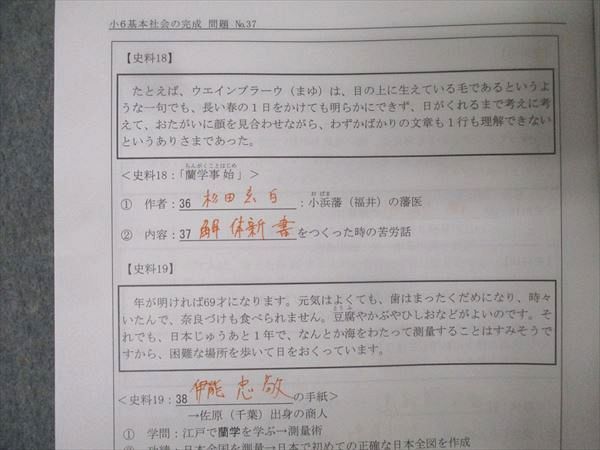 小6基本社会の完成 問題 №37
【史料18】
たとえば、ウエインブラーウ(まゆ)は、目の上に生えている毛であるというよ
うな一句でも、長い春の1日をかけても明らかにできず、日がくれるまで考えに考
えて、おたがいに顔を見合わせながら、わずかばかりの文章も1行も理解できない
というありさまであった。
らんがくことはじめ
<史料18:「蘭学事始」>
おばま
① 作者:36 杉田玄白:小浜藩(福井)の藩医
② 内容:37 解体新書をつくった時の苦労話
【史料19】
年が明ければ69才になります。元気はよくても、歯はまったくだめになり、時々
いたんで、奈良づけも食べられません。豆腐やかぶやひしおなどがよいのです。そ
れでも、日本じゅうあと1年で、なんとか海をわたって測量することはすみそうで
すから、困難な場所を歩いて日をおくっています。
<史料19:38 伊能忠敬の手紙>
→佐原(千葉)出身の商人
① 学問:江戸で蘭学を学ぶ→測量術
② 功績:日本全国を測量→日本で初めての正確な日本全図を作成